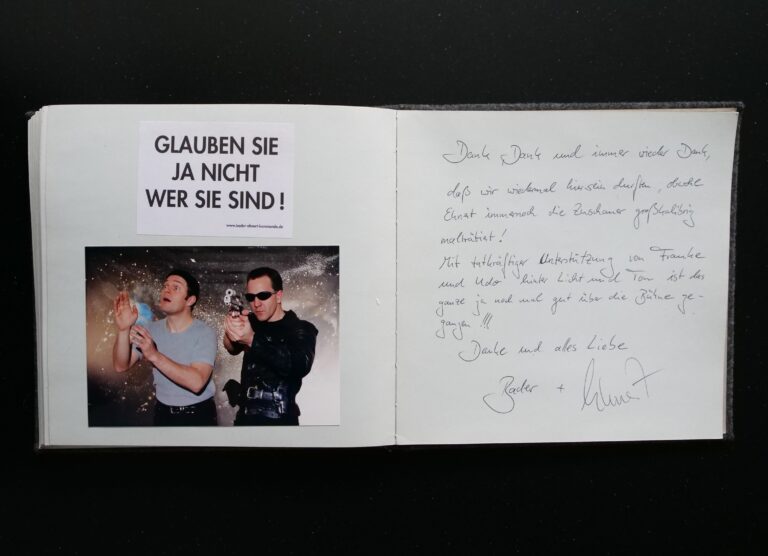 GLAUBEN SIE
JA NICHT
WER SIE SIND!
Dank, Dank und immer wieder Dank,
daß wir wiedermal hiersein durften, obwohl
Ehnert immernoch die Zuschauer großkalibrig
malträtiert!
Mit tatkräftiger Unterstützung von Franke
und Udo hinter Licht und Ton ist das
ganze ja noch mal gut über die Bühne ge-
gangen !!!
Danke und alles Liebe
+